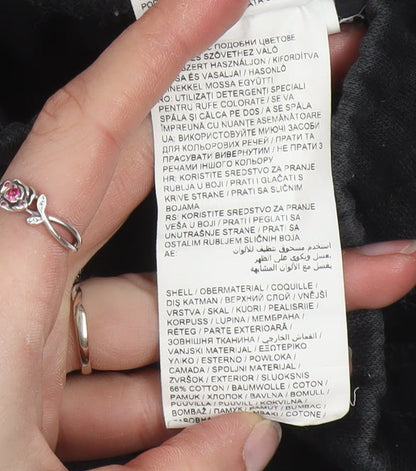 ПОДОБНИ ЦВЕТОВЕ
ÉS SZÖVETHEZ VALÓ
SZERT HASZNÁLJON / KIFORDÍTVA
SA ÉS VASALJA! / HASONLÓ
SZÍNEKKEL MOSSA EGYÜTT!
RO: UTILIZAȚI DETERGENȚI SPECIALI
PENTRU RUFE COLORATE / SE VA
SPĂLA ȘI CĂLCA PE DOS / A SE SPĂLA
ÎMPREUNĂ CU NUANȚE ASEMĂNĂTOARE
UA: ВИКОРИСТОВУЙТЕ МИЮЧІ ЗАСОБИ
ДЛЯ КОЛЬОРОВИХ РЕЧЕЙ / ПРАТИ ТА
ПРАСУВАТИ ВИВЕРНУТИМ / НЕ ПРАТИ З
РЕЧАМИ ІНШОГО КОЛЬОРУ
HR: KORISTITE SREDSTVO ZA PRANJE
RUBLJA U BOJI / PRATI I GLAČATI S
KRIVE STRANE / PRATI SA SLIČNIM
BOJAMA
RS: KORISTITE SREDSTVO ZA PRANJE
VEŠA U BOJI / PRATI I PEGLATI SA
UNUTRAŠNJE STRANE / PRATI SA
OSTALIM RUBLJEM SLIČNIH BOJA
AE: استخدم مسحوق تنظيف للألوان
/يغسل ويكوى على الظهر
يغسل مع الألوان المشابهة
SHELL / OBERMATERIAL / COQUILLE /
DIŞ KATMAN / ВЕРХНИЙ СЛОЙ / VNĚJŠÍ
VRSTVA / SKAL / KUORI / PEALISRIIE /
KORPUSS / LUPINA / МЕМБРАНА /
RÉTEG / PARTE EXTERIOARĂ /
ЗОВНІШНЯ ТКАНИНА / انقماش الخارجي /
VANJSKI MATERIJAL / ΕΞΩΤΕΡΙΚΟ
ΥΛΙΚΟ / ESTERNO / POWŁOKA /
CAMADA / SPOLJNI MATERIJAL /
ZVRŠOK / EXTERIOR / SLUOKSNIS
66% COTTON / BAUMWOLLE / COTON /
PAMUK / ХЛОПОК / BAVLNA / BOMULL /
PUUVILLA / PUUVILL / KOKVILNA /
BOMBAŽ / ПАМУК / PAMUT / BUMBAC /
COTONE /